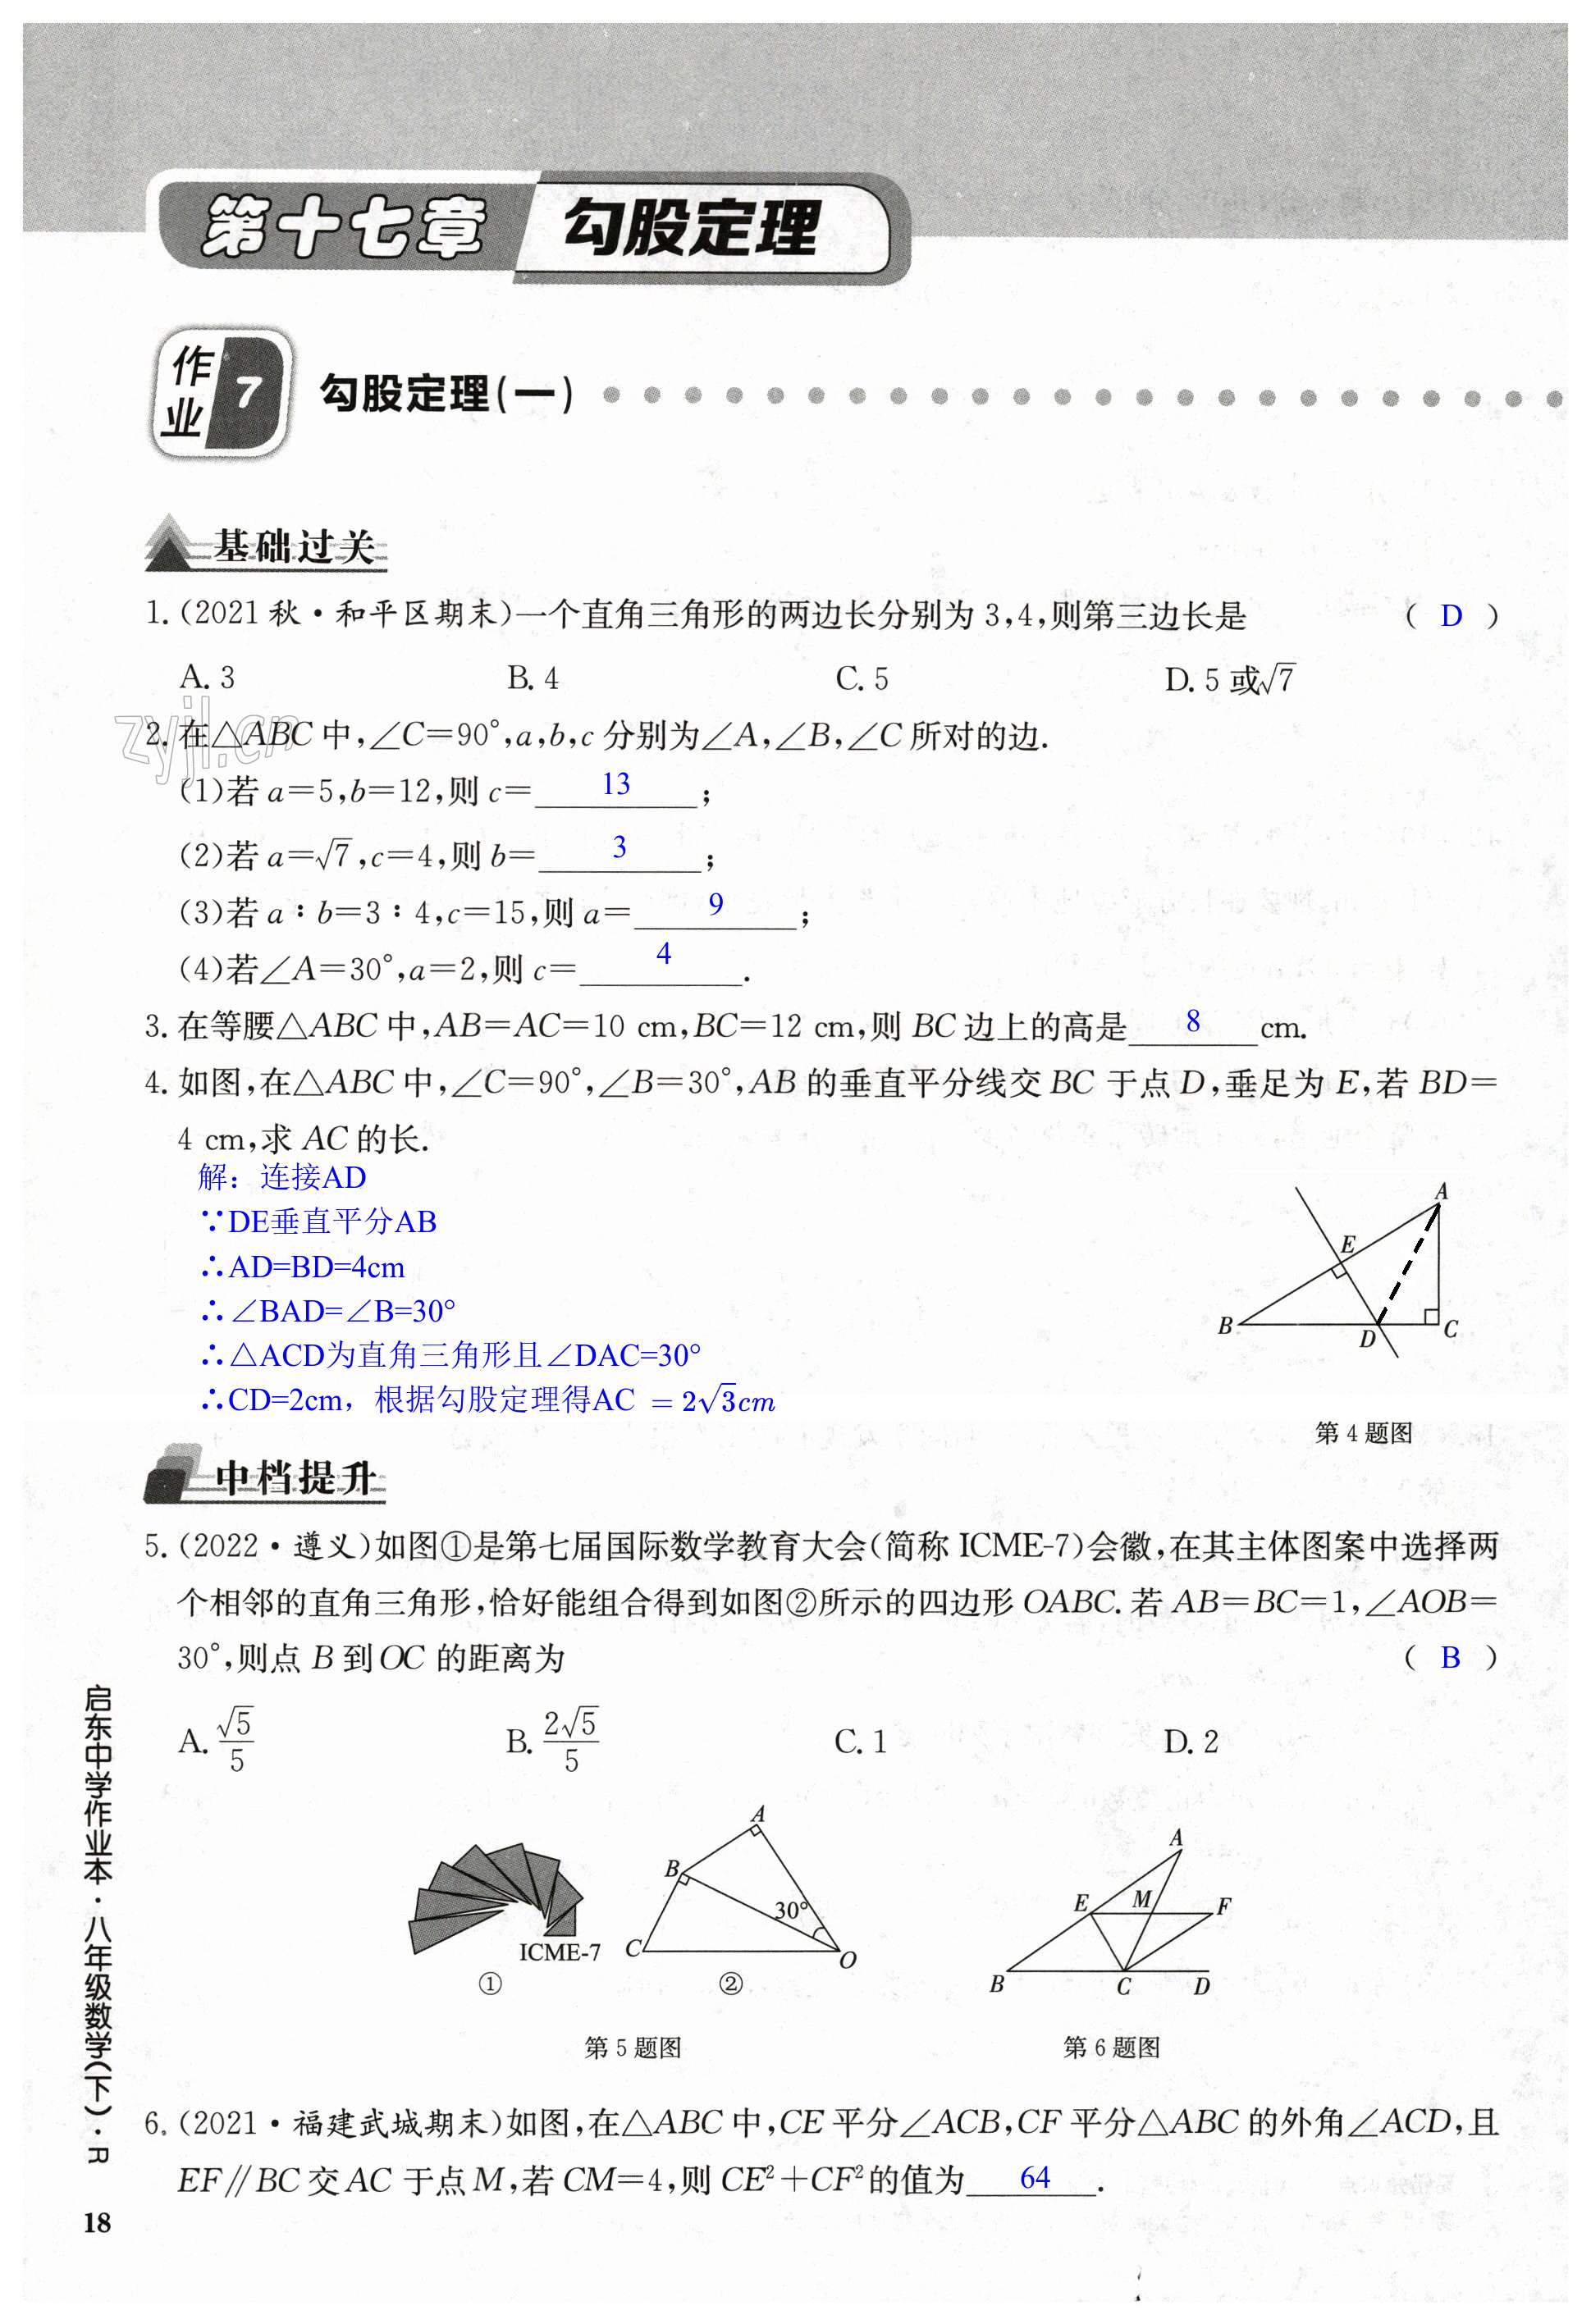 第十七章 勾股定理
作业 7 勾股定理(一)
基础过关
1.(2021秋·和平区期末)一个直角三角形的两边长分别为3,4,则第三边长是 ( D )
A. 3 B. 4 C. 5 D. 5或√7
zyjl.cn
2. 在△ABC中,∠C=90°,a,b,c分别为∠A,∠B,∠C所对的边.
(1)若a=5,b=12,则c=13;
(2)若a=√7,c=4,则b=3;
(3)若a∶b=3∶4,c=15,则a=9;
(4)若∠A=30°,a=2,则c=4.
3. 在等腰△ABC中,AB=AC=10 cm,BC=12 cm,则BC边上的高是8cm.
4. 如图,在△ABC中,∠C=90°,∠B=30°,AB的垂直平分线交BC于点D,垂足为E,若BD=
4 cm,求AC的长.
解：连接AD
∵DE垂直平分AB
∴AD=BD=4cm
∴∠BAD=∠B=30°
∴△ACD为直角三角形且∠DAC=30°
∴CD=2cm，根据勾股定理得AC =2√3cm
A
E
B
D
C
第4题图
中档提升
5.(2022·遵义)如图①是第七届国际数学教育大会(简称ICME-7)会徽,在其主体图案中选择两
个相邻的直角三角形,恰好能组合得到如图②所示的四边形OABC.若AB=BC=1,∠AOB=
30°,则点B到OC的距离为 ( B )
A. √5/5 B. 2√5/5 C. 1 D. 2
ICME-7
①
A
B
30°
C
O
②
第5题图
A
E M F
B C D
第6题图
6.(2021·福建武城期末)如图,在△ABC中,CE平分∠ACB,CF平分△ABC的外角∠ACD,且
EF∥BC交AC于点M,若CM=4,则CE²+CF²的值为64.
启东中学作业本·八年级数学(下)·R
18